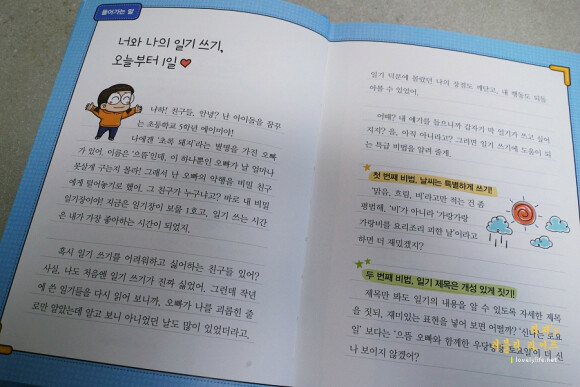 들어가는 말
너와 나의 일기 쓰기,
오늘부터 1일
나하! 친구들, 안녕? 난 아이돌을 꿈꾸
는 초등학교 5학년 에이미야!
나에겐 '초록 돼지'라는 별명을 가진 오빠
가 있어. 이름은 '으뜸'인데, 이 하나뿐인 오빠가 날 얼마나
못살게 구는지 몰라! 그래서 난 오빠의 악행을 비밀 친구
에게 털어놓기로 했어. 그 친구가 누구냐고? 바로 내 비밀
일기장이야! 지금은 일기장이 보물 1호고, 일기 쓰는 시간
은 내가 가장 좋아하는 시간이 되었지.
혹시 일기 쓰기를 어려워하고 싫어하는 친구들 있어?
사실, 나도 처음엔 일기 쓰기가 진짜 싫었어. 그런데 작년
에 쓴 일기들을 다시 읽어 보니까, 오빠가 나를 괴롭힌 줄
로만 알았는데 알고 보니 아니었던 날도 많이 있었더라고.
일기 덕분에 몰랐던 나의 장점도 깨닫고, 내 행동도 되돌
아볼 수 있었어.
어때? 내 얘기를 들으니까 갑자기 막 일기가 쓰고 싶어
지지? 음, 아직 아니라고? 그러면 일기 쓰기에 도움이 되
는 특급 비법을 알려 줄게.
첫 번째 비법, 날씨는 특별하게 쓰기!
'맑음, 흐림, 비'라고만 적는 건 좀
평범해. '비'가 아니라 '가랑가랑
가랑비를 요리조리 피한 날'이라고
하면 더 재밌겠지?
두 번째 비법, 일기 제목은 개성 있게 짓기!
제목만 봐도 일기의 내용을 알 수 있도록 자세한 제목
을 짓되, 재미있는 표현을 넣어 보면 어떨까? '신나는 토요
일' 보다는 '으뜸 오빠와 함께한 우당탕탕 토요일'이 더 신
나 보이지 않겠어?
lovelylife.net